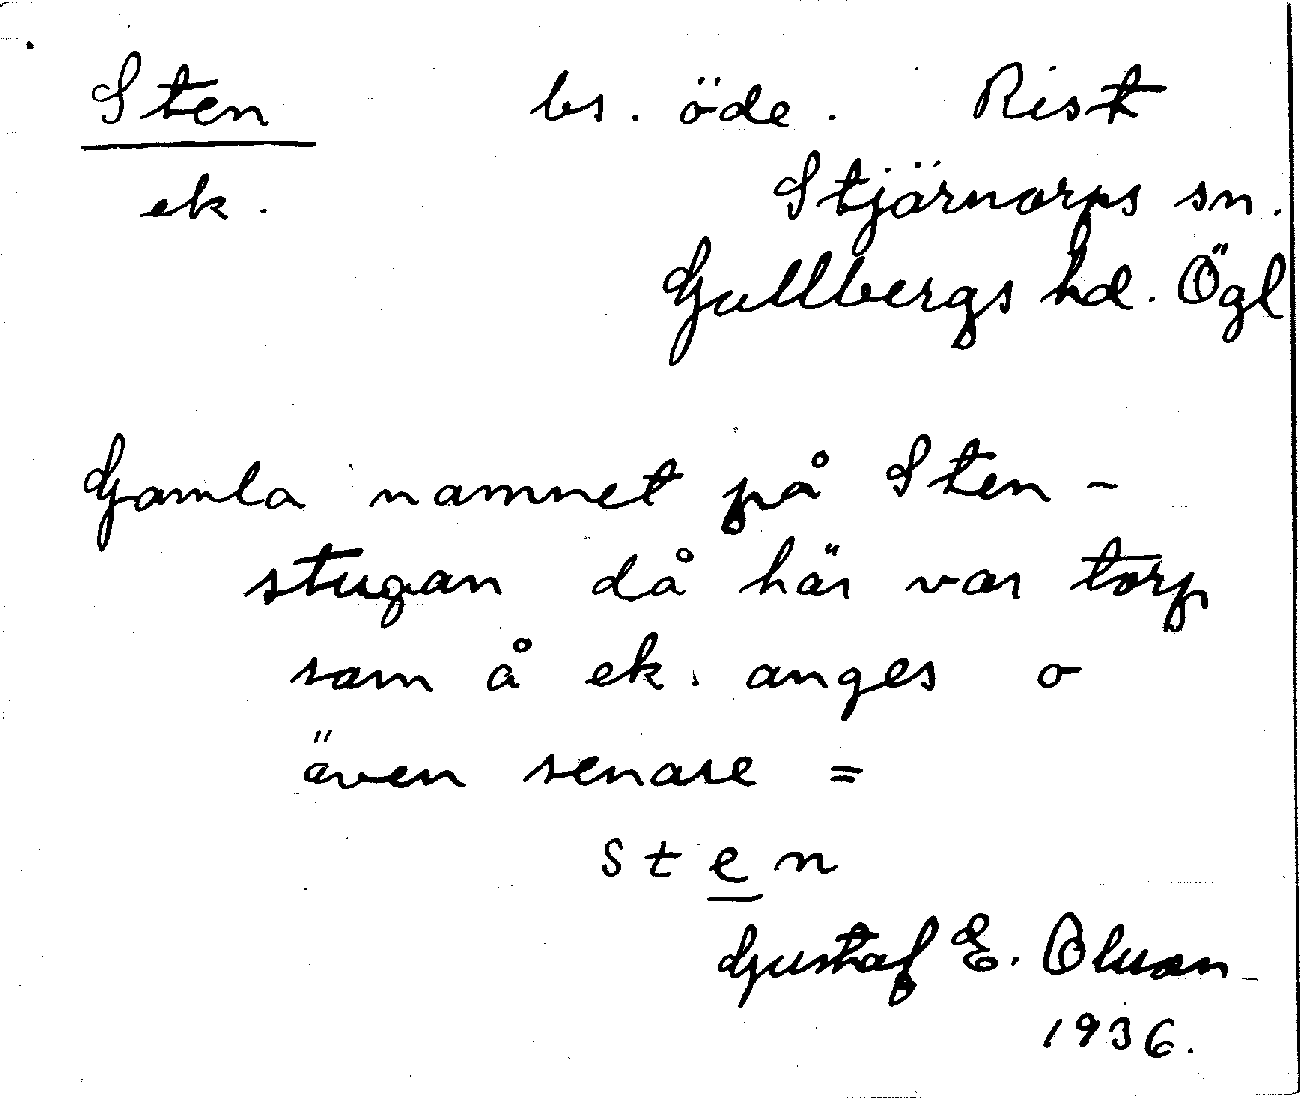 Sten bs. öde. Rist
ek. Stjärnorps sn.
Gullbergs hd. Ögl
Gamla namnet på Sten-
stugan då här var torp
som å ek. anges o
även senare =
Sten
Gustaf E. Olsson
1936.